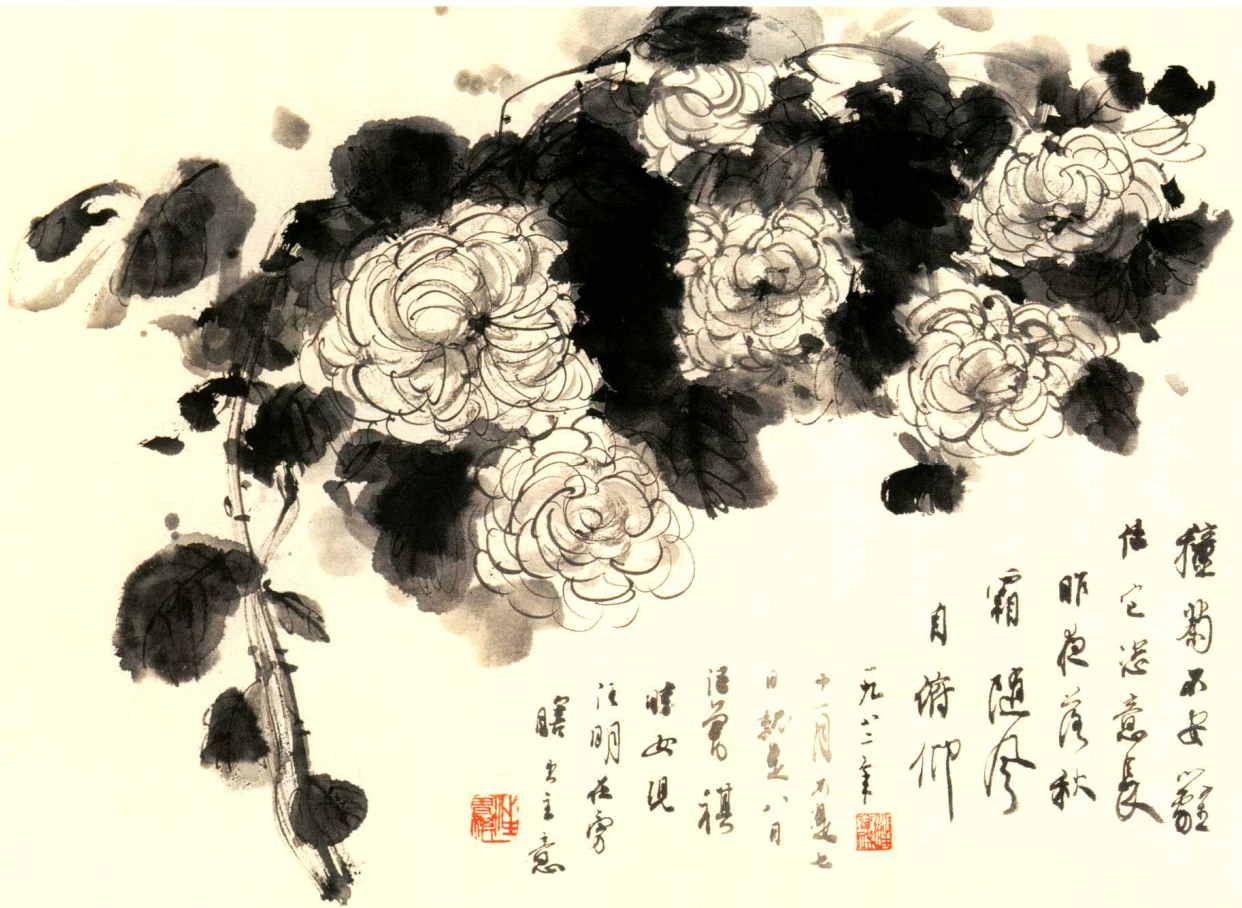 種菊不安籬
任它恣意長
昨夜落秋
霜隨風
自俯仰
一九八二年
十一月不是七
日就是八日
汪曾祺
時女兒
汪明在旁
瞎出主意